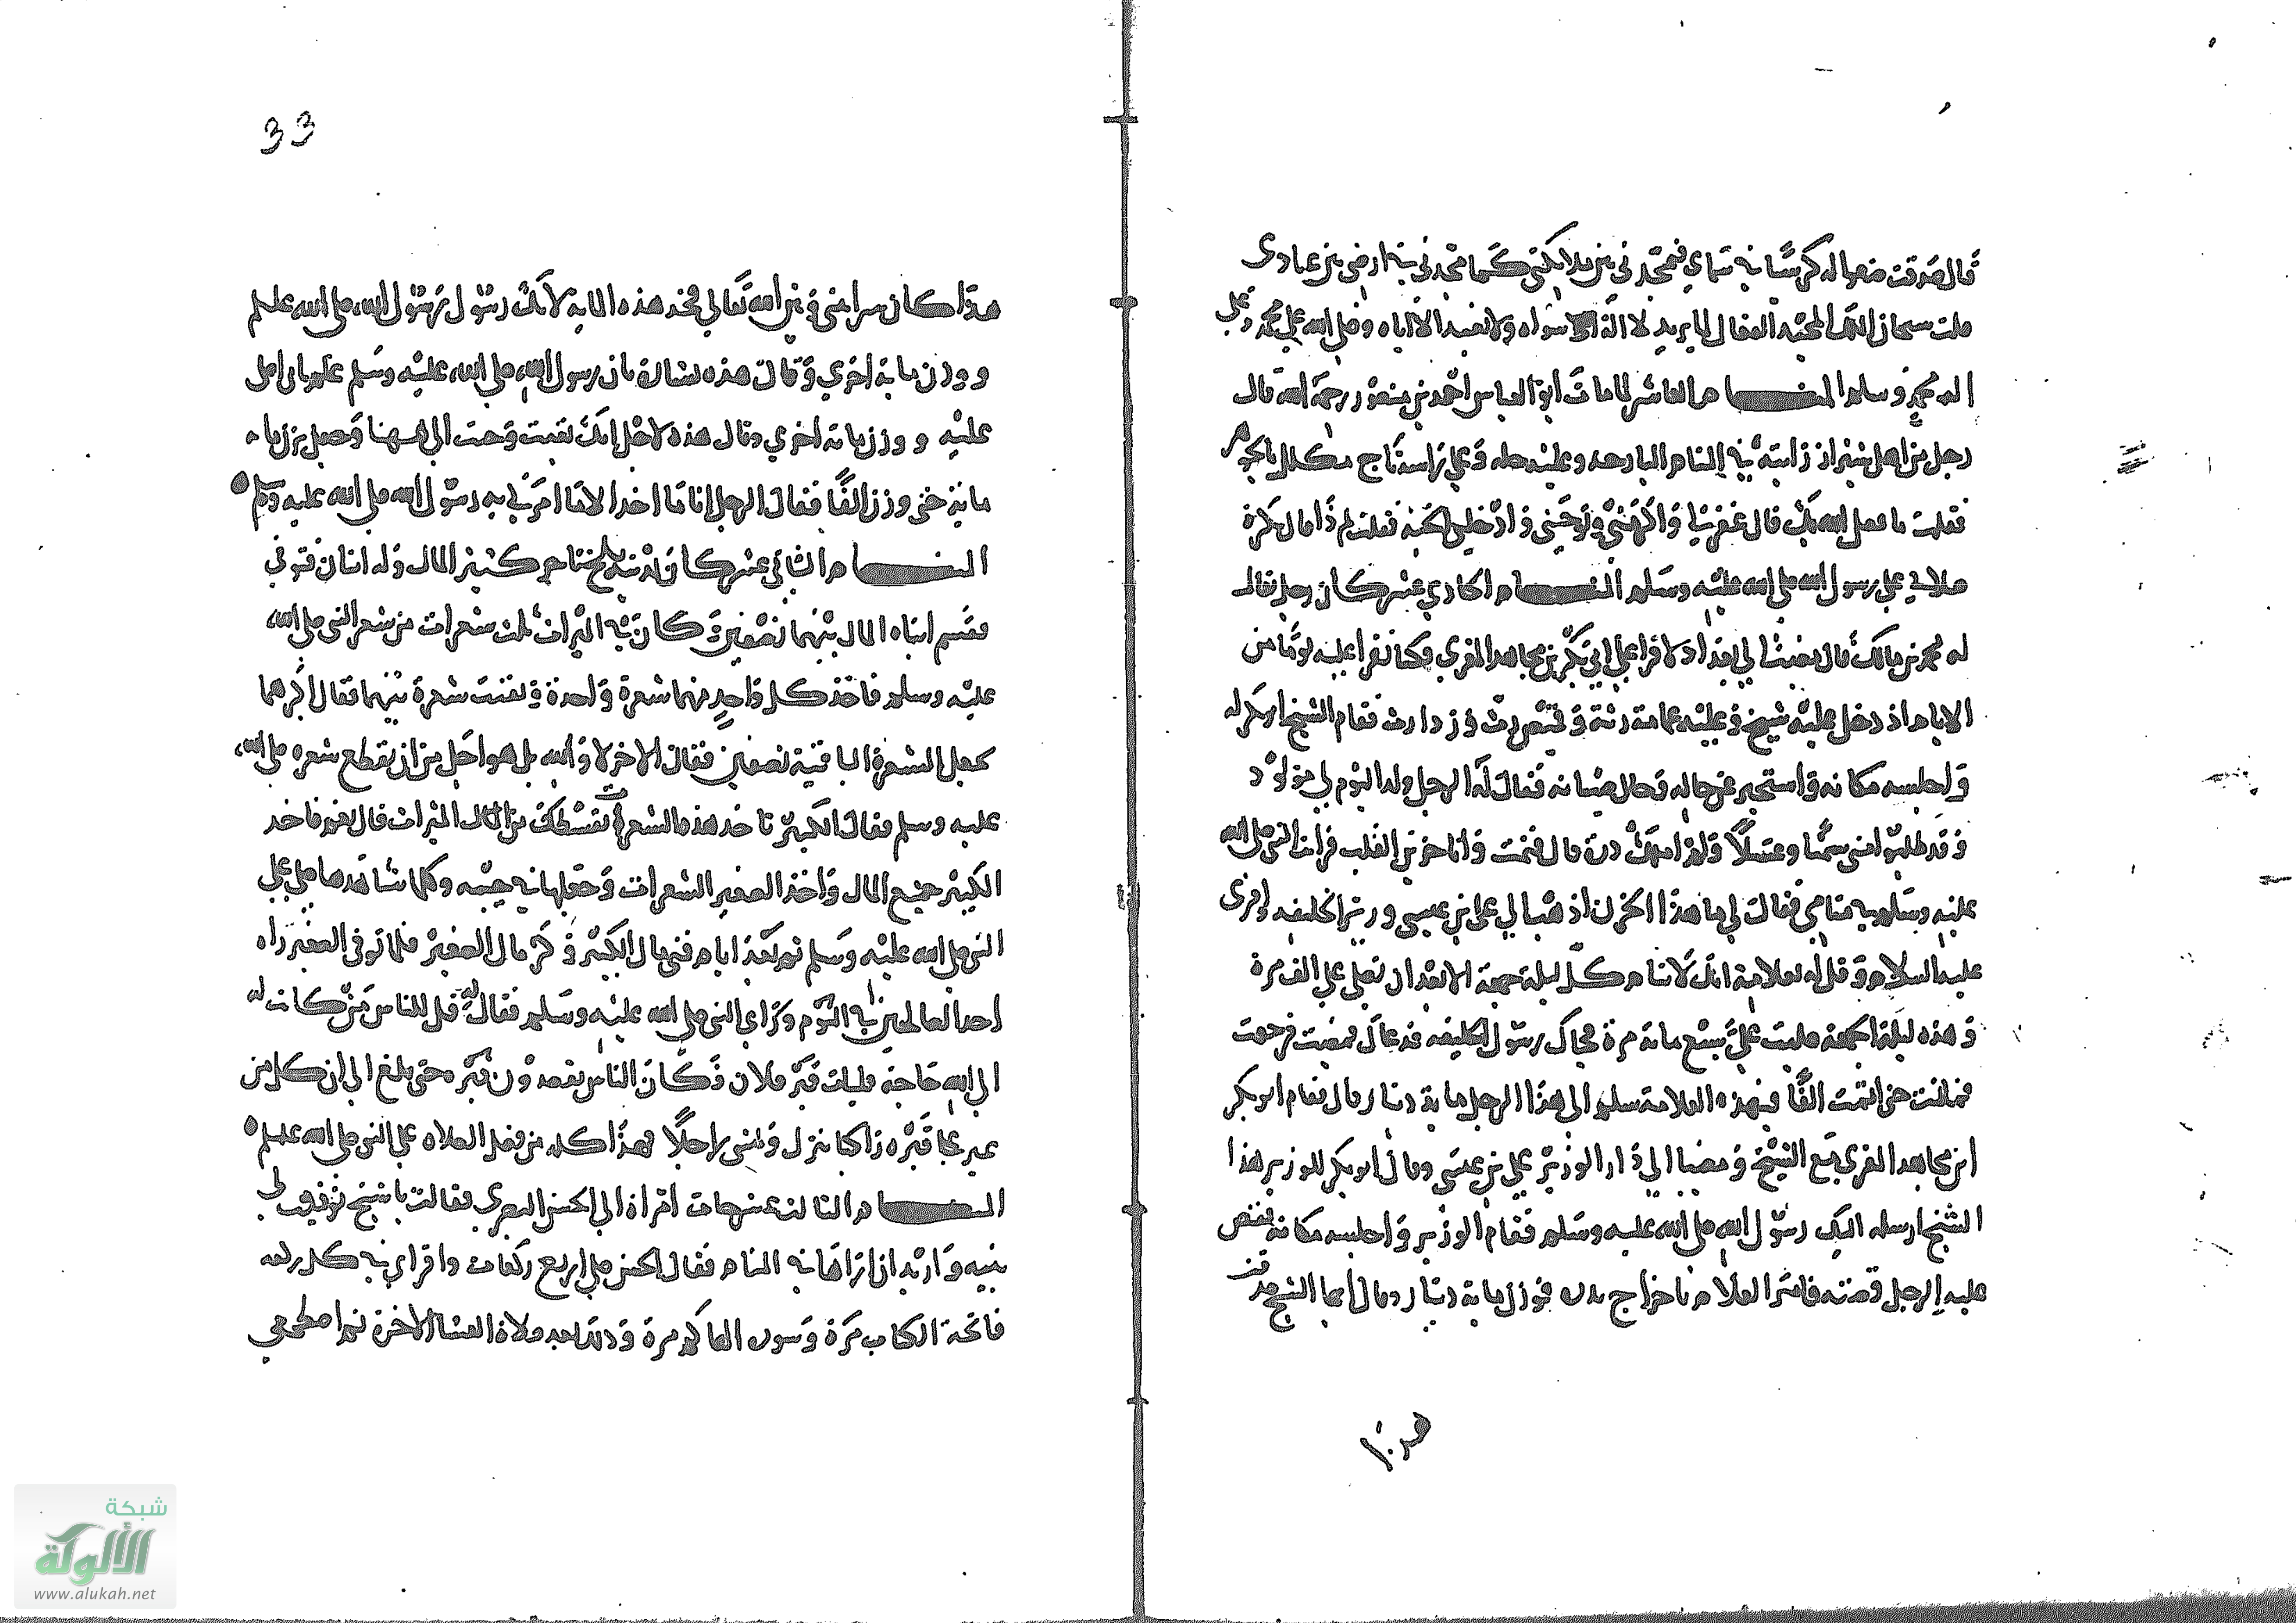 قال صدقت ضعوا له كرسيا في سماي فيمجدني بين ملايكتي كما مجدني في ارضي بين عبادي
سبحان الله المجيد الفعال لما يريد لا اله سواه ولا نعبد الا اياه وصلى الله على محمد وعلى
ال محمد وسلم المنام العاشر لما مات ابو العباس احمد بن منصور رحمه الله قال
رجل من اهل شيراز رايته في المنام البارحه وعليه حله وعلى راسه تاج مكلل بالجوهر
فقلت ما فعل الله بك قال غفر لي واكرمني وتوجني وادخلني الجنه فقلت لم ذا قال بكثرة
صلاتي على رسول الله صلى الله عليه وسلم المنام الحادي عشر كان رجل يقال
له محمد بن مالك قال مضيت الي بغداد لاقرا على ابي بكر بن مجاهد المقري فكنا نقرا عليه يوما من
الايام اذ دخل عليه شيخ وعليه عمامة رثة وقميص رث وردا رث فقام الشيخ ابو بكر له
واجلسه مكانه واستخبر عن حاله وحال صبيانه فقال له الرجل ولد اليوم لي مولود
وقد طلبوا مني سمنا وعسلا ولم املك ذرة قال فنمت وانا حزين القلب فرايت النبي صلى الله
عليه وسلم في منامي فقال لي ما هذا الحزن اذهب الي علي بن عيسى وزير الخليفه واقرى
عليه السلام وقل له بعلامة انك لا تنام كل ليلة جمعة الا بعد ان تصلي علي الف مرة
وهذه ليلة الجمعة صليت علي سبع ماية مرة فجاك رسول الخليفه فدعاك فمضيت فرجعت
فصليت حتى اتممت الفا فبهذه العلامة سلم الى هذا الرجل ماية دينار قال فقام ابو بكر
ابن مجاهد المقري مع الشيخ ومضيا الي دار الوزير علي بن عيسى وقال ابو بكر للوزير هذا
الشيخ ارسله اليك رسول الله صلى الله عليه وسلم فقام الوزير واجلسه مكانه فقص
عليه الرجل قصته فامر الغلام باخراج بدرة فوزن ماية دينار وقال ايها الشيخ صدقت
هذا
33
هذا كان سرا بيني وبين الله تعالى فخذ هذه الماية لانك رسول رسول الله صلى الله عليه وسلم
ووزن ماية اخري وقال هذه بشارة بان رسول الله صلى الله عليه وسلم علم
عليه ووزن ماية اخري وقال هذه لاجل انك تعبت وجيت الى ههنا وجعل يزن ماية
ماية حتى وزن الفا فقال الرجل انا ما اخذ الا ما امرني به رسول الله صلى الله عليه وسلم
المنام الثاني عشر كان بمدينة بلخ تاجر كثير المال وله ابنان فتوفي
فقسم ابناه المال بينهما نصفين وكان في الميراث ثلث شعرات من شعر النبي صلى الله
عليه وسلم فاخذ كل واحد منهما شعرة واحدة وبقيت شعرة بينهما فقال اكبرهما
نجعل الشعرة الباقية نصفين فقال الاخر لا والله بل هو اجل من ان يقطع شعره صلى الله
عليه وسلم فقال الكبير تاخذ هذه الشعرات بقسطك من المال الميراث قال نعم فاخذ
الكبير جميع المال واخذ الصغير الشعرات وجعلها في جيبه وكلما شاهدها صلى على
النبي صلى الله عليه وسلم ثم بعد ايام فني مال الكبير وكثر مال الصغير فلما توفى الصغير راه
احد الصالحين في النوم وراي النبي صلى الله عليه وسلم فقال له قل للناس من كانت له
الى الله حاجة فليات قبر فلان وكان الناس يقصدون قبره حتى بلغ الى ان كل من
عبر على قبره راكبا نزل ومشى راجلا فهذا كله من فضل الصلاه على النبي صلى الله عليه وسلم
المنام الثالث عشر جات امراة الى الحسن البصري فقالت يا شيخ توفيت لي
بنيه واريد ان اراها في المنام فقال الحسن صلي اربع ركعات واقراي في كل ركعه
فاتحة الكتاب مرة وسورة الهاكم مرة وذلك بعد صلاة العشا الاخرة ثم اضطجعي
شبكة
الألوكة
www.alukah.net